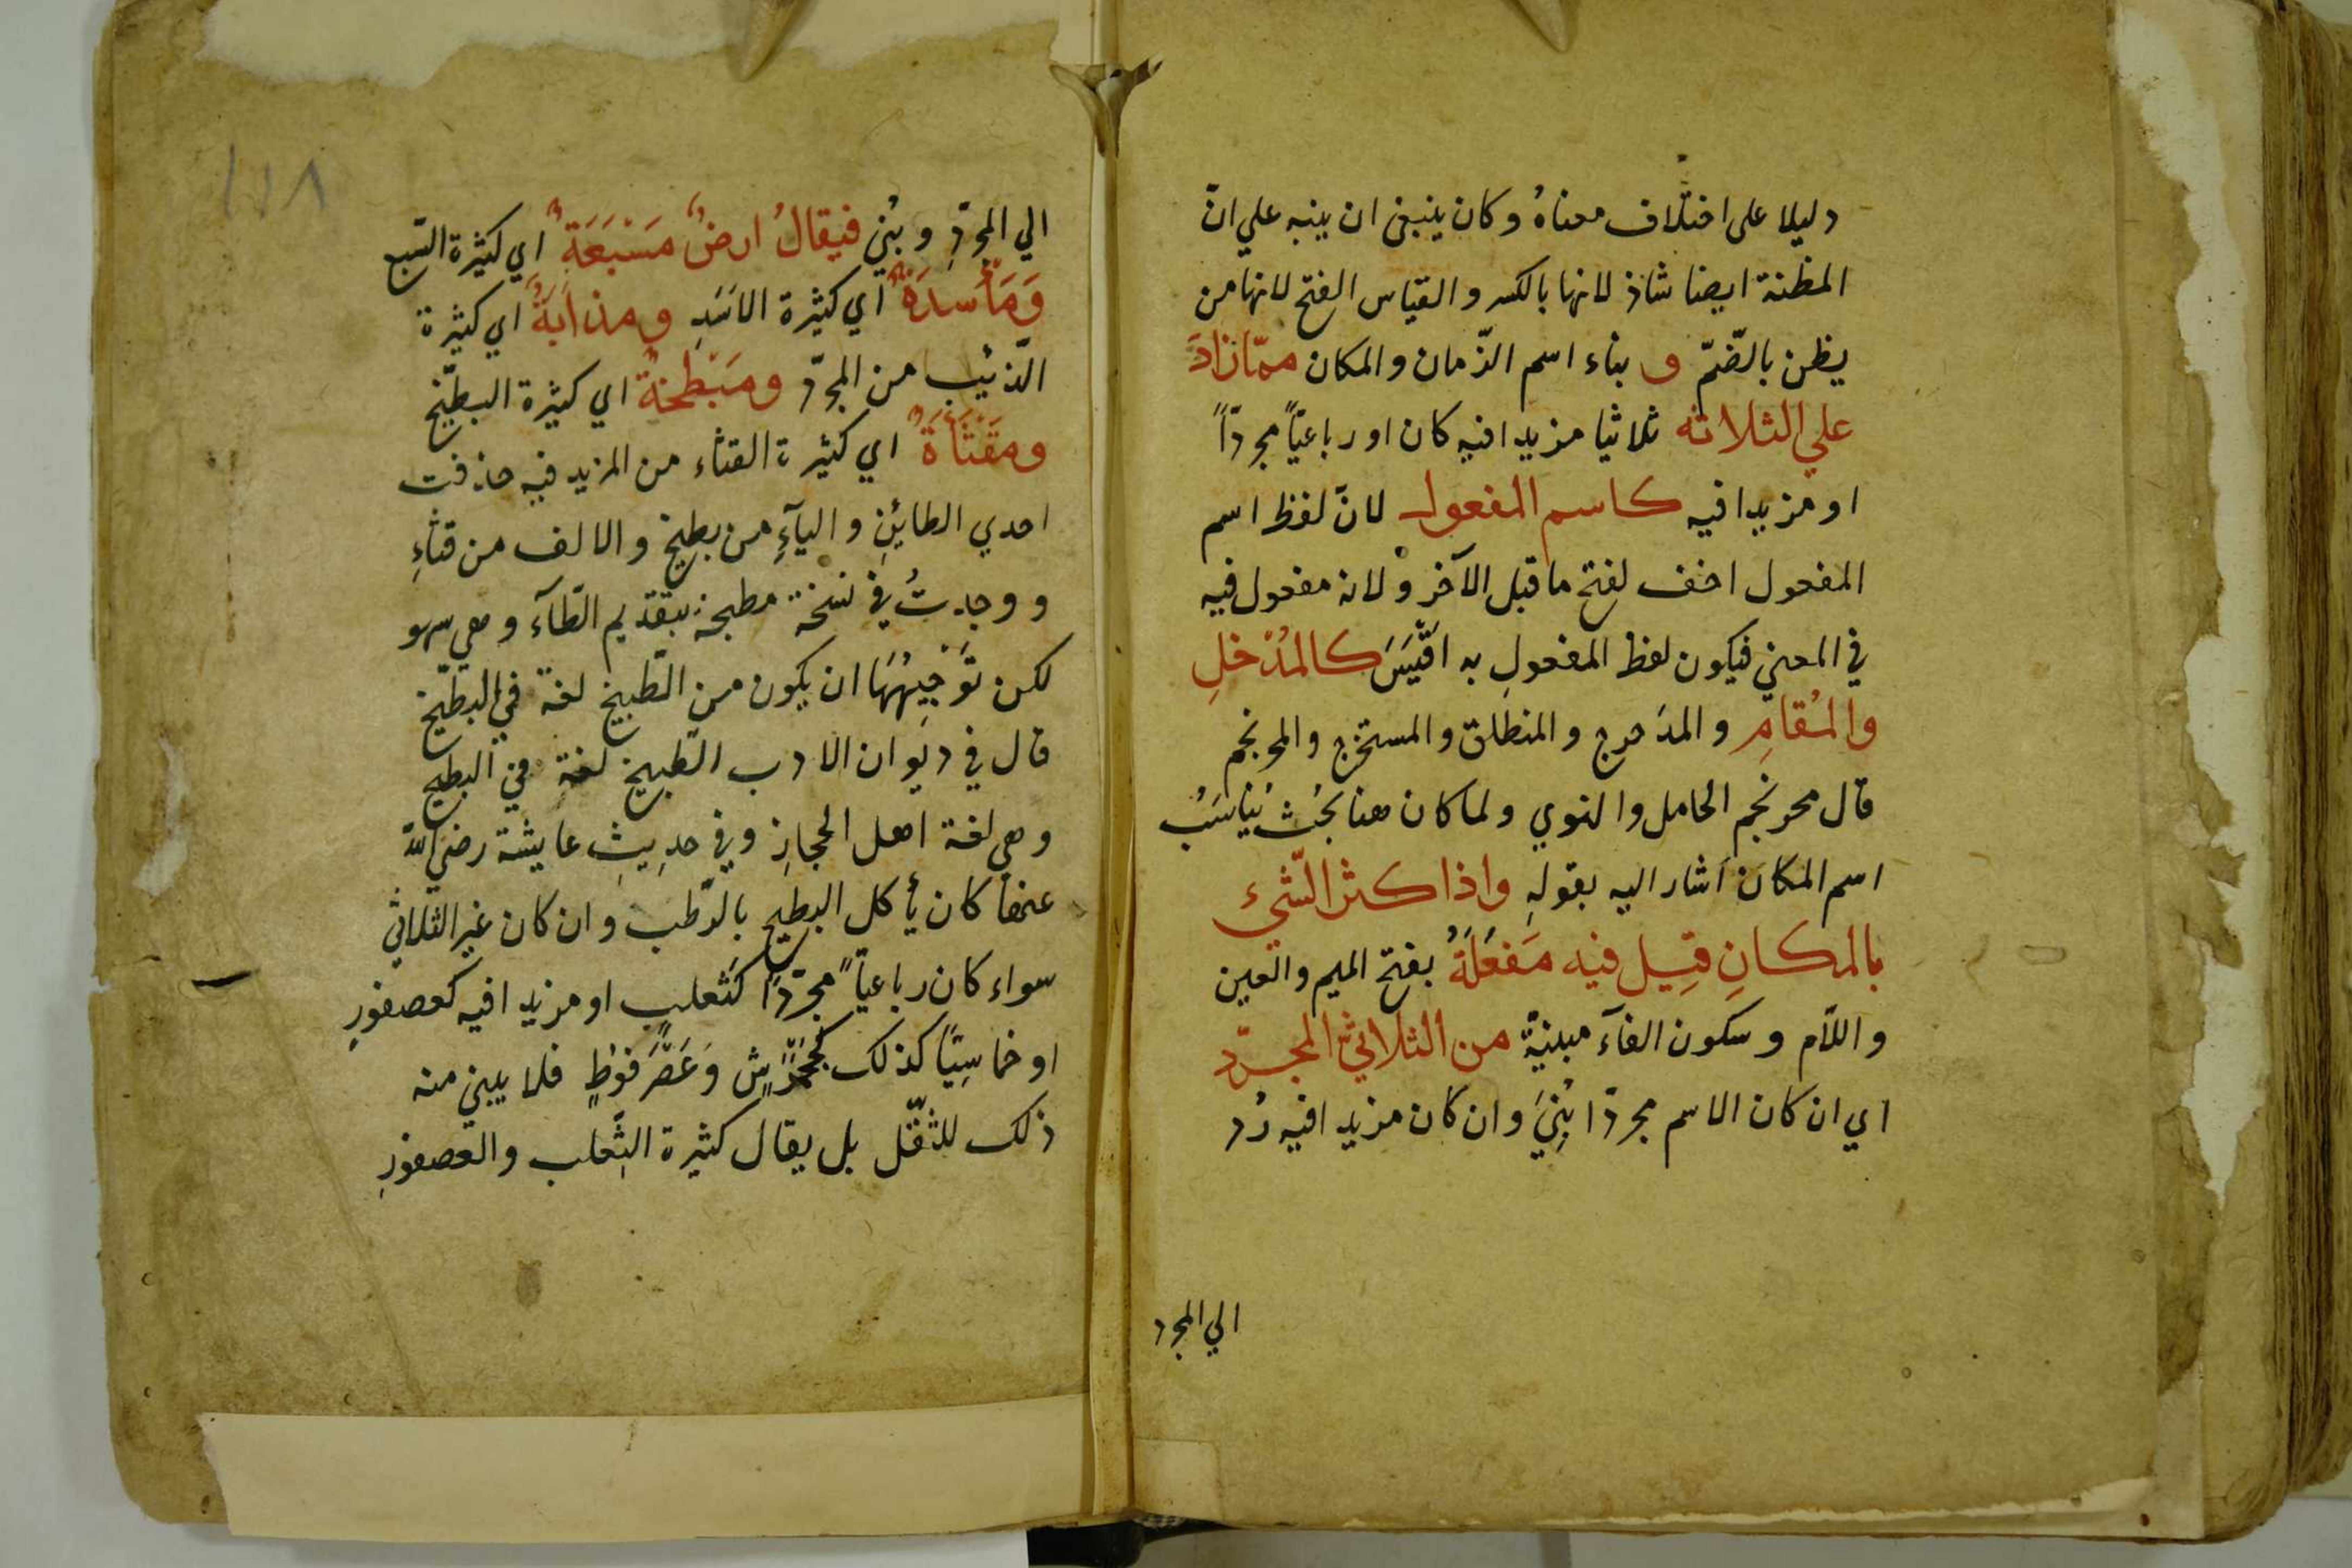 دليلا على اختلاف معناهُ وكان ينبغى ان ينبه علي انّ
المظنة ايضا شاذ لانها بالكسر والقياس الفتح لانها من
يظن بالضّمّ و بناء اسم الزّمان والمكان ممّا زادَ
علي الثلاثه ثلاثيا مزيدا فيه كان او رباعيّاً مجردّاً
او مزيدا فيه كاسم المفعول لانّ لفظ اسم
المفعول اخف لفتح ما قبل الآخر ولانه مفعول فيه
في المعني فيكون لفظ المفعولِ به اقْيَسَ كالمُدْخلِ
والمُقامِ والمدَحرج والمنطلق والمستخرج والمحرنجم
قال محرنجم الحامل والنوي ولما كان هنا بحْث يُناسَبُ
اسم المكان اشار اليه بقولهِ واذا كثر الشّيء
بالمكانِ قِيل فيه مَفعَلَةُ بفتح الميم والعين
واللاّم وسكون الفاء مبنيّة من الثلاثيّ المجرّد
اي ان كان الاسم مجردّا بُنِيَ وان كان مزيدا فيه رُد
الي المجرد
١١٨
الي المجرّدِ وبُنِي فيقالُ ارضٌ مَسْبَعَةٌ اي كثيرة السّبع
وَمَأْسدَةٌ اي كثيرة الاسَدِ ومذأبَةٌ اي كثيرة
الذّئب من المجرّد ومَبْطخةٌ اي كثيرة البطّيخ
ومقثَأَةٌ اي كثيرة القثاء من المزيد فيه حذفت
احدي الطائينِ والياءِ من بطيخ والالف من قثاءِ
ووجدتُ في نسخة مطبخة بتقديم الطّاء وهي سهو
لكن تَوْجِيهُهَا ان يكون من الطّبيخ لغة في البطّيخ
قال في ديوان الادب الطّبيخ لغةِ في البطيخ
وهي لغة اهل الحجازِ وفي حديثِ عايشة رضي الله
عنها كان يأكل البطيخ بالرّطب وان كان غير الثلاثي
سواء كان رباعيّاً مجرّدًا كثعلب او مزيدا فيه كعصفورٍ
او خماسِيًّا كذلك كجَحْمَرشٍ وَعَضْرَفوطٍ فلا يبني منه
ذلك للثقّل بل يقال كثيرة الثّعلب والعصفورِ